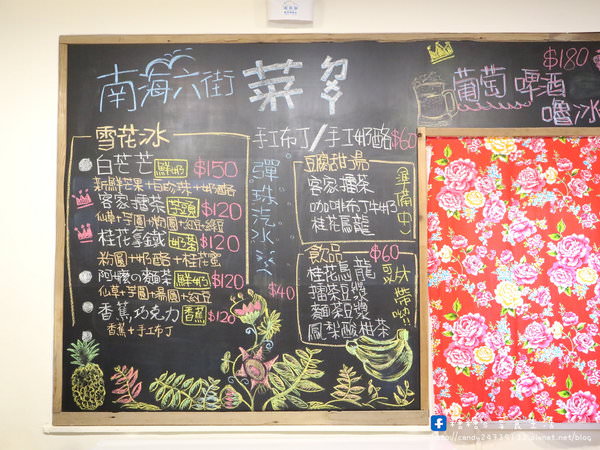 南海六街 菜ㄅㄨㄚ
$180
葡萄啤酒
嚕冰
雪花冰
白芒芒 鮮奶 $150
新鮮芒果+白珍珠+奶酪
客家擂茶 芋頭 $120
仙草+芋圓+粉圓+紅豆+綠豆
桂花拿鐵 奶茶 $120
粉圓+奶酪+桂花蜜
阿嬤の麵茶 鮮奶 $120
仙草+芋圓+湯圓+紅豆
香蕉巧克力 香蕉 $120
香蕉+手工布丁
手工布丁/手工奶酪 $60
彈珠汽水
$40
豆腐甜湯
客家擂茶
咖啡布丁牛奶
桂花烏龍
(準備中)
飲品 $60
桂花烏龍
擂茶豆漿
麵茶豆漿
鳳梨酸柑茶
可以外帶喲!